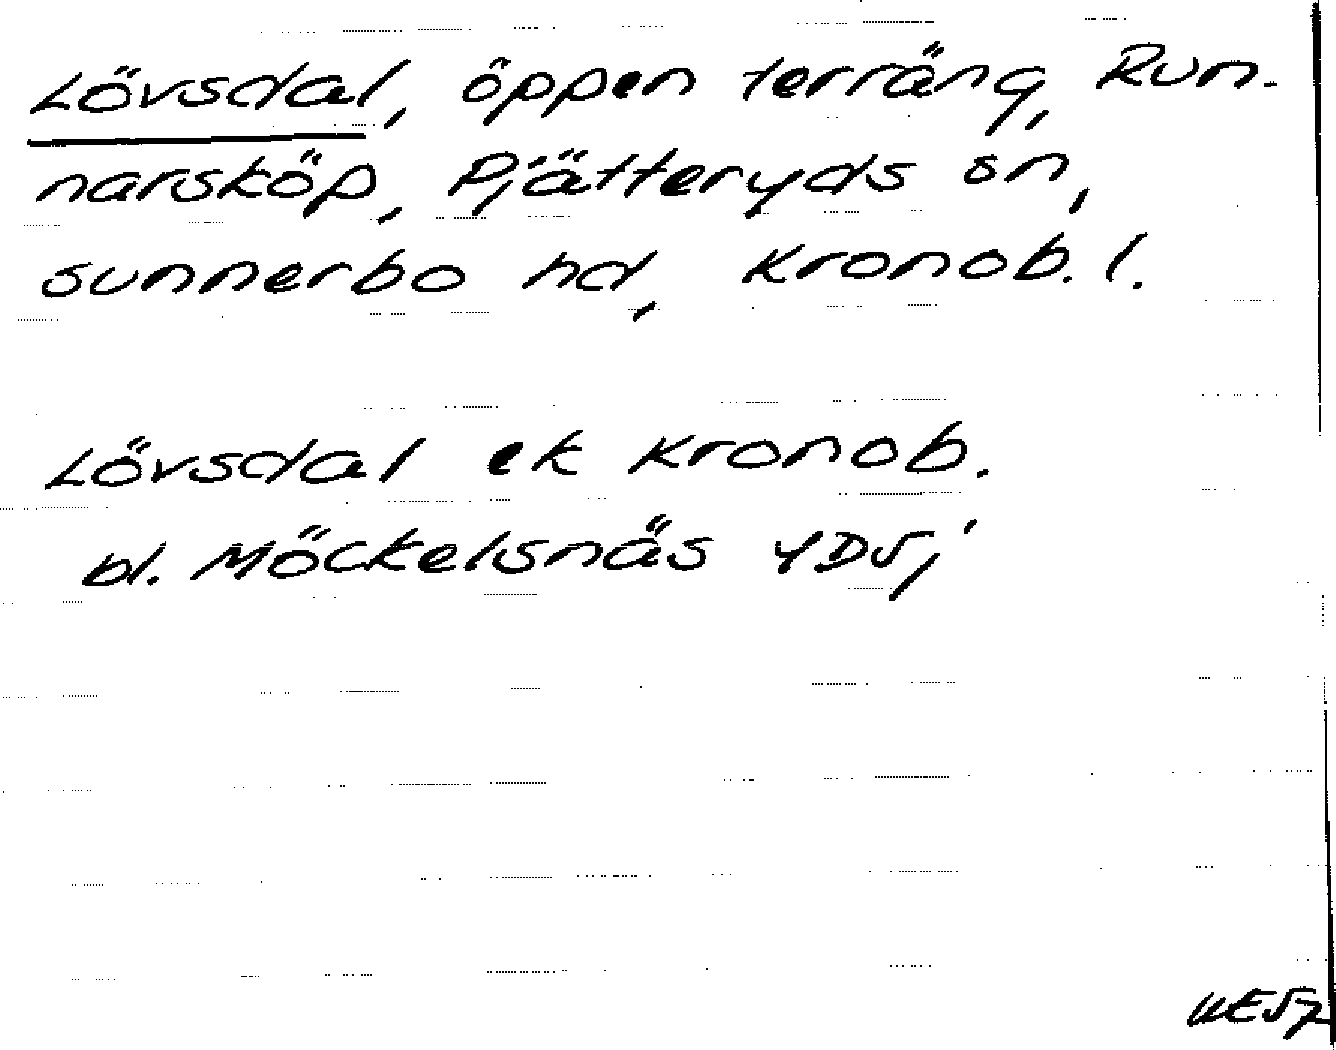 Lövsdal, öppen terräng, Run-
narsköp, Pjätteryds sn,
Sunnerbo hd, Kronob. l.
Lövsdal ek Kronob.
bl. Möckelsnäs 4D5j